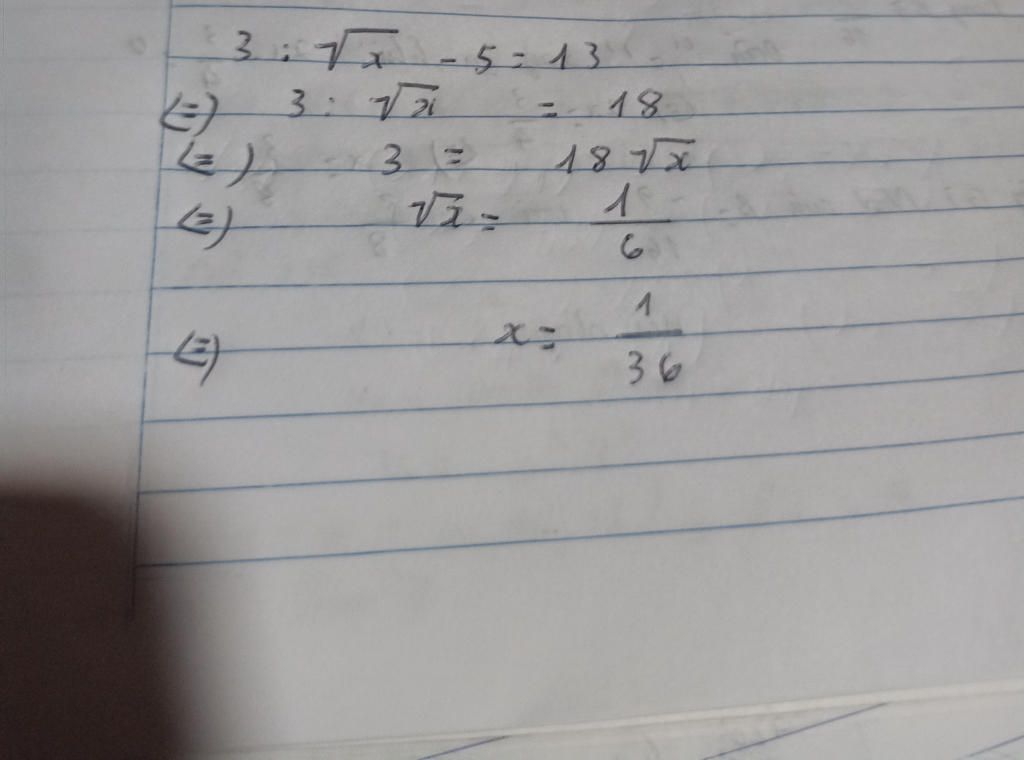 3 : √x - 5 = 13
(=) 3 : √x = 18
(=) 3 = 18 √x
(=) √x = 1/6
(=) x = 1/36